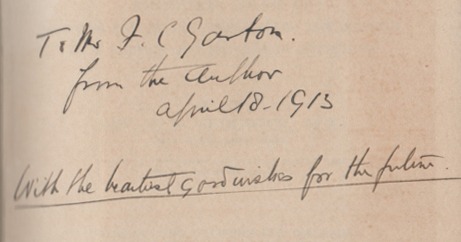 To Mr F. C Garton.
from the Author
April 18-1913
With the heartiest good wishes for the future.